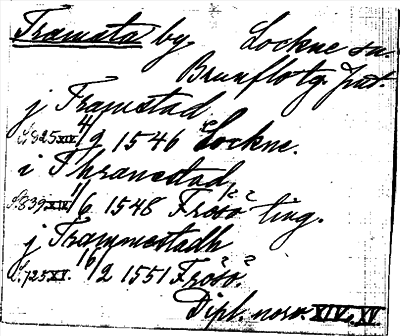 Tramsta by Lockne sn.
Brunflo tg. Jmt.
j Tramstad
S. 825 XIV. 4/9 1546 Lockne.
i Thramstad
S. 839 XIV. 1/6 1548 Frösö ting.
j Trammestadh
S. 725 XV. 16/2 1551 Frösö.
Dipl. norv. XIV. XV